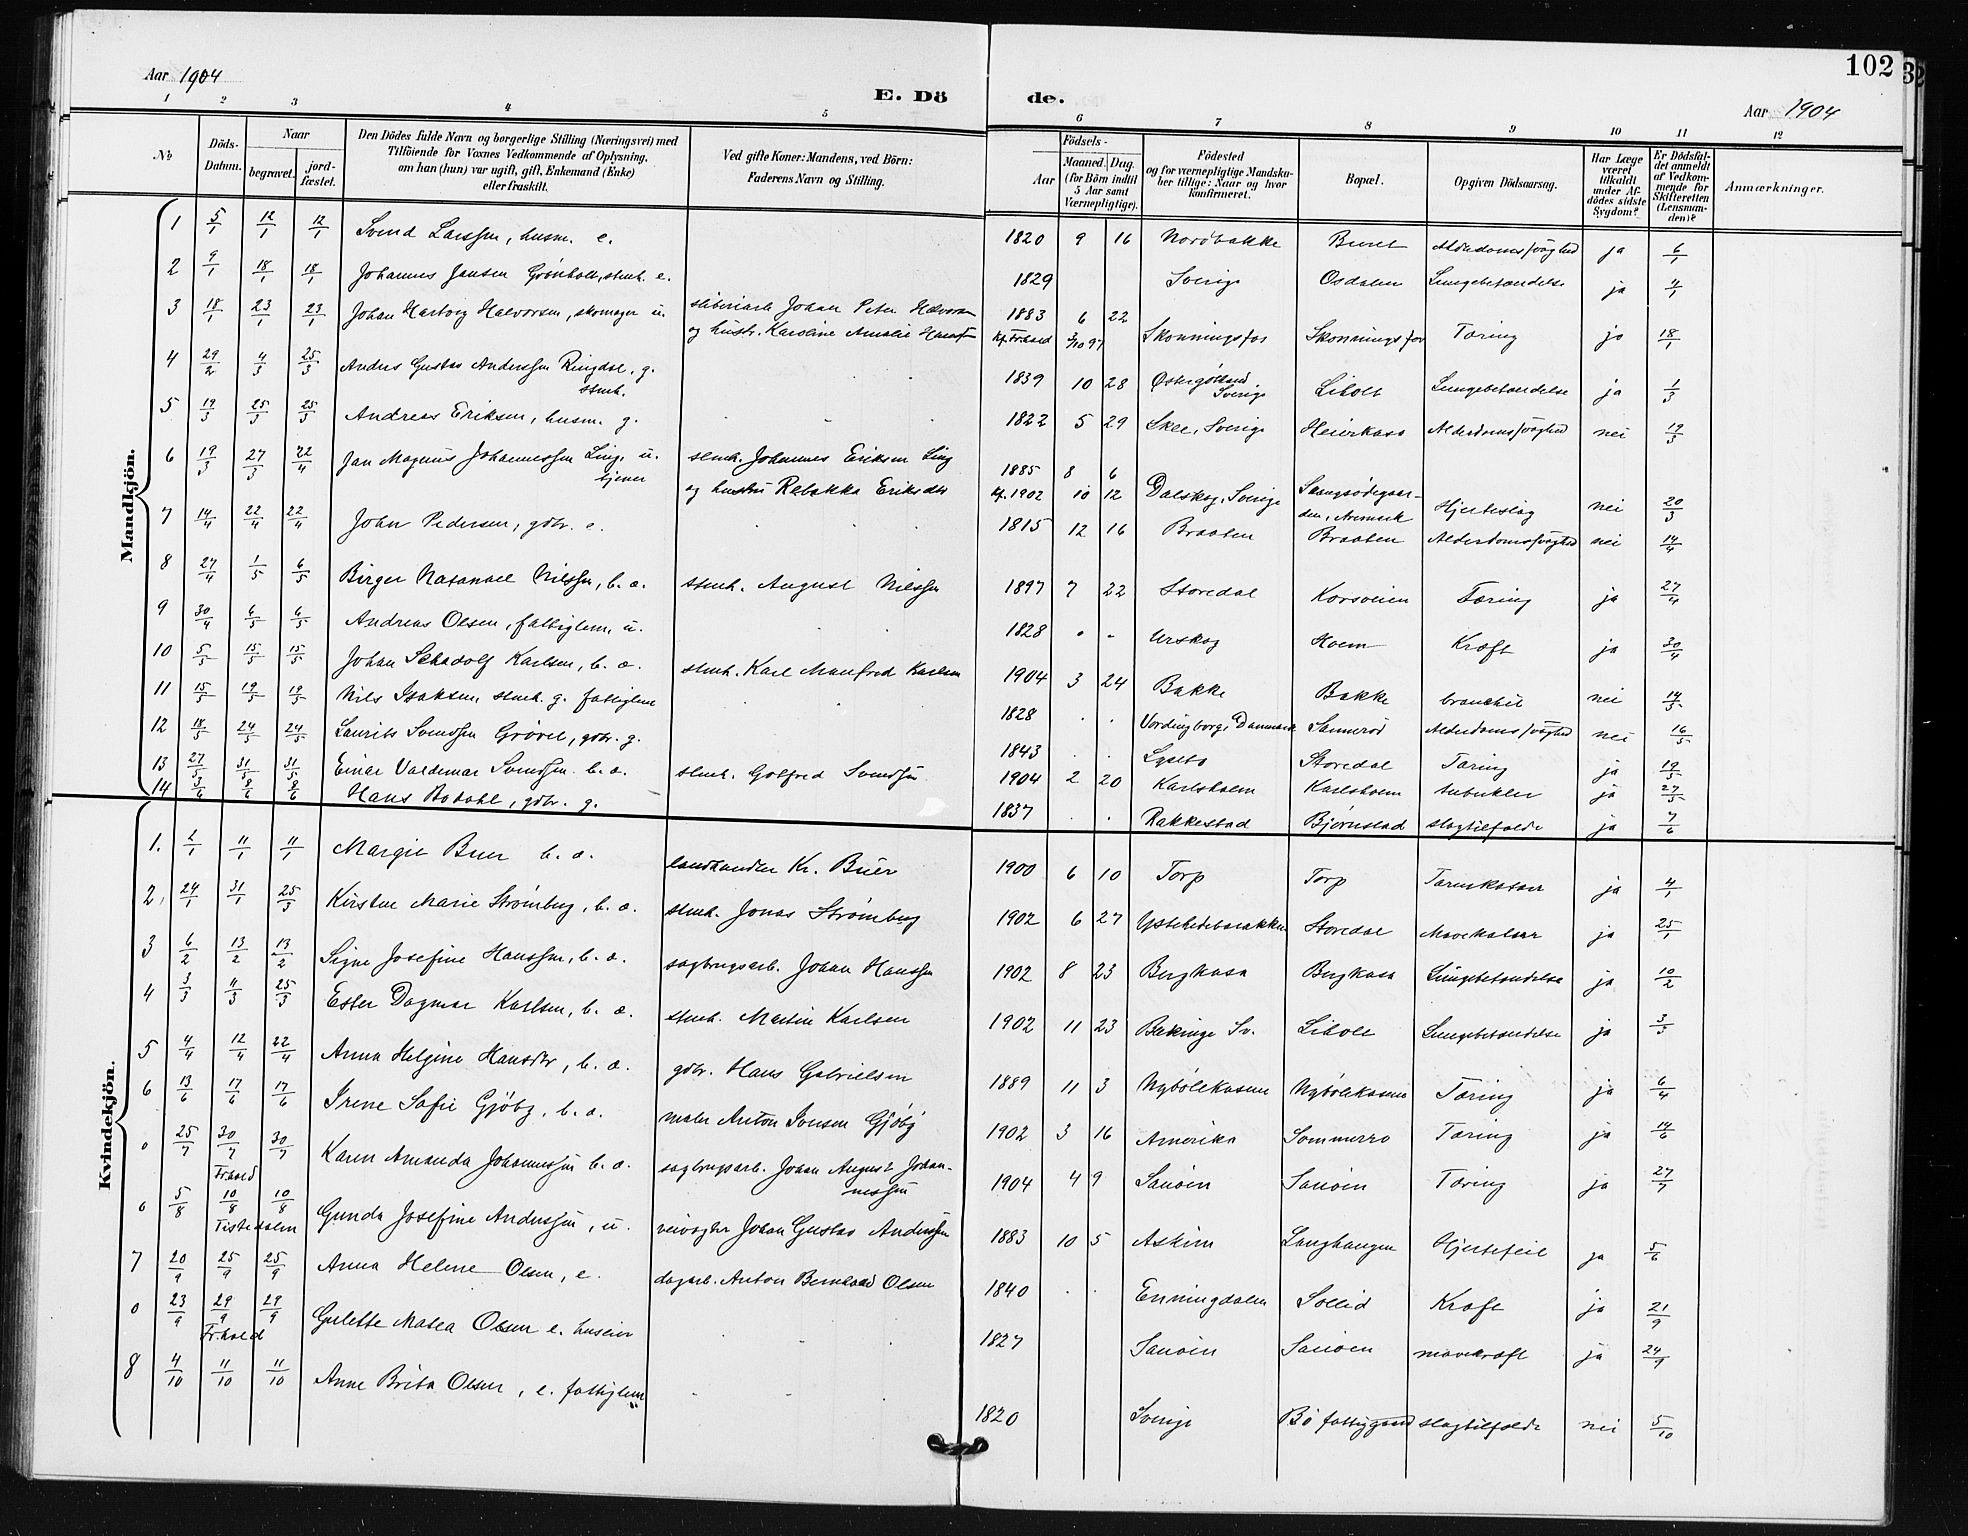 Aar 1904
E. Dö
de.
102
Aar 1904
1 2 3 4 5 6 7 8 9 10 11 12
№
Döds-Datum.
Naar
begravet.
jord-fæstet.
Den Dödes fulde Navn og borgerlige Stilling (Næringsvei) med
Tilföiende for Voxnes Vedkommende af Oplysning,
om han (hun) var ugift, gift, Enkemand (Enke)
eller fraskilt.
Ved gifte Koner: Mandens, ved Börn:
Faderens Navn og Stilling.
Födsels-
Aar
Maaned. Dag.
(for Börn indtil
5 Aar samt
Værnepligtige).
Födested
og for værnepligtige Mandska-
ber tillige: Naar og hvor
konfirmeret.
Bopæl.
Opgiven Dödsaarsag.
Har Læge
været
tilkaldt
under Af-
dödes sidste
Sygdom?
Er Dödsfal-
det anmeldt
af Vedkom-
mende for
Skifteretten
(Lensman-
den)?
Anmærkninger.
Mandkjön.
1 5/1 12/1 12/1 Svend Larssen, husm. e. 1820 9 16 Nordbakke Buret Alderdomssvaghed ja 6/1
2 9/1 18/1 18/1 Johannes Jansen Grönholt, stmh. e. 1829 Sverige Osdalen Lungebetændelse ja 4/1
3 18/1 23/1 23/1 Johan Hartvig Halvorsen, skomager u. sliberiarb. Johan Peter Halvorsen 1883 6 22
og hustr. Karoline Amalie kf. Fr.hald 3/10 97 Skonningsfos Skonningsfos Tæring ja 18/1
4 29/2 4/3 25/3 Anders Gustav Anderssen Ringdal, g. 1839 10 28 Østergötland Liholt Lungebetændelse ja 1/3
stmh. Sverige
5 19/3 25/3 25/3 Andreas Eriksen, husm. g. 1822 5 29 Skee, Sverige Heierkasa Alderdomssvaghed nei 19/3
6 19/3 27/3 22/4 Jan Magnus Johannessen Ling, u. stmh. Johannes Eriksen Ling 1885 8 6
tjener og hustru Rebekka Eriksdtr kf. 1902 10 12 Dalskog, Sverige den, Aremark Hjerteslag nei 20/3
7 14/4 22/4 22/4 John Pedersen, gdbr. e. 1815 12 16 Braaten Braaten Alderdomssvaghed nei 14/4
8 27/4 1/5 6/5 Birger Natanael Nilssen, b. a. stmh. August Nilssen 1897 7 22 Storedal Korsveien Tæring ja 27/4
9 30/4 6/5 6/5 Andreas Olsen, fattiglem, u. 1828 Urskog Hoem Kræft ja 30/4
10 5/5 15/5 15/5 Johan Karlsen, b. a. stmh. Karl Manfred Karlsen 1904 3 24 Bakke Bakke bronchit nei 14/5
11 15/5 19/5 19/5 Nils Isaksen, stmh. g. fattiglem 1828 Vordingborg, Danmark Sannerød Alderdomssvaghed nei 16/5
12 18/5 24/5 24/5 Laurits Svendsen Grövel, gdbr. g. 1843 Storedal Tæring ja 19/5
13 27/5 31/5 31/5 Einar Valdemar Svendsen b. a. stmh. Golfred Svendsen 1904 2 20 Karlsholm Karlsholm tuberkler ja 27/5
14 3/6 8/6 8/6 Hans Bodahl, gdbr. g. 1837 Rakkestad Bjørnstad slagtilfælde ja 7/6
Kvindekjön.
1. 2/1 11/1 11/1 Margit Buer b. a. landhandler Kr. Buer 1900 6 10 Torp Torp Tarmkatar ja 4/1
2, 24/1 31/1 25/3 Kirstine Marie Strömberg, b. a. stmh. Jonas Strömberg 1902 6 27 Ystehedebarakken Storedal Mavekatar ja 25/1
3 6/2 13/2 13/2 Signe Josefine Hanssen, b. a. sagbrugsarb. Johan Hanssen 1902 8 23 Bergkasa Bergkasa Lungebetændelse ja 10/2
4 3/3 4/3 25/3 Ester Dagmar Karlsen, b. a. stmh. Martin Karlsen 1902 11 23 Blekinge Sv. Liholt Lungebetændelse ja 3/3
5 4/4 12/4 22/4 Anna Helgine Hansdtr, b. a. gdbr. Hans Gabrielsen 1889 11 3 Nybølekasene Nybølekasene Tæring ja 6/4
6 13/6 17/6 17/6 Irene Sofie Gjöby, b. a. maler Anton Ivensen Gjöby 1902 3 16 Amerika Sommerro Tæring ja 14/6
0 25/7 30/7 30/7 Karen Amanda Johannessen b. a. sagbrugsarb. Johan August Johan- 1904 4 9 Sanöin Sanöin Tæring ja 27/7
Fr.hald nessen
0 5/8 10/8 10/8 Gunda Josefine Anderssen, u. veivogter Johan Gustav Anderssen 1883 10 5 Askim Langhaugen Hjertefeil ja 5/6
Tistedalen
7 20/9 25/9 25/9 Anna Helene Olsen, e. dagarb. Anton Bernhard Olsen 1840 Enningdalen Sollid Kræft ja 21/9
0 23/9 29/9 29/9 Gulette Matea Olsen e. huseier 1827 Sanöin Sanöin mavekræft ja 24/9
Fr.hald
8 4/10 11/10 11/10 Anne Brita Olsen, e. fattiglem 1820 Sverige Bö fattiggaard slagtilfælde nei 5/10